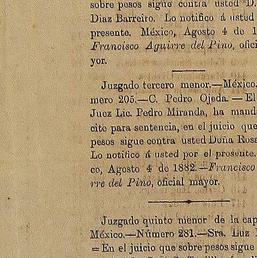 sobre pesos sigue contra usted D.
Diaz Barreiro. Lo notifico á usted
presente. México, Agosto 4 de 1
Francisco Aguirre del Pino, ofici
yor.
Juzgado tercero menor.—México.
mero 205.—C. Pedro Ojeda. — El
Juez Lic. Pedro Miranda, ha mand
cite para sentencia, en el juicio que
pesos sigue contra usted Doña Rosa
Lo notifico á usted por el presente.
co, Agosto 4 de 1882.—Francisco
rre del Pino, oficial mayor.
Juzgado quinto menor de la cap
México.—Número 281.—Sra. Luz
=En el juicio que sobre pesos sigue